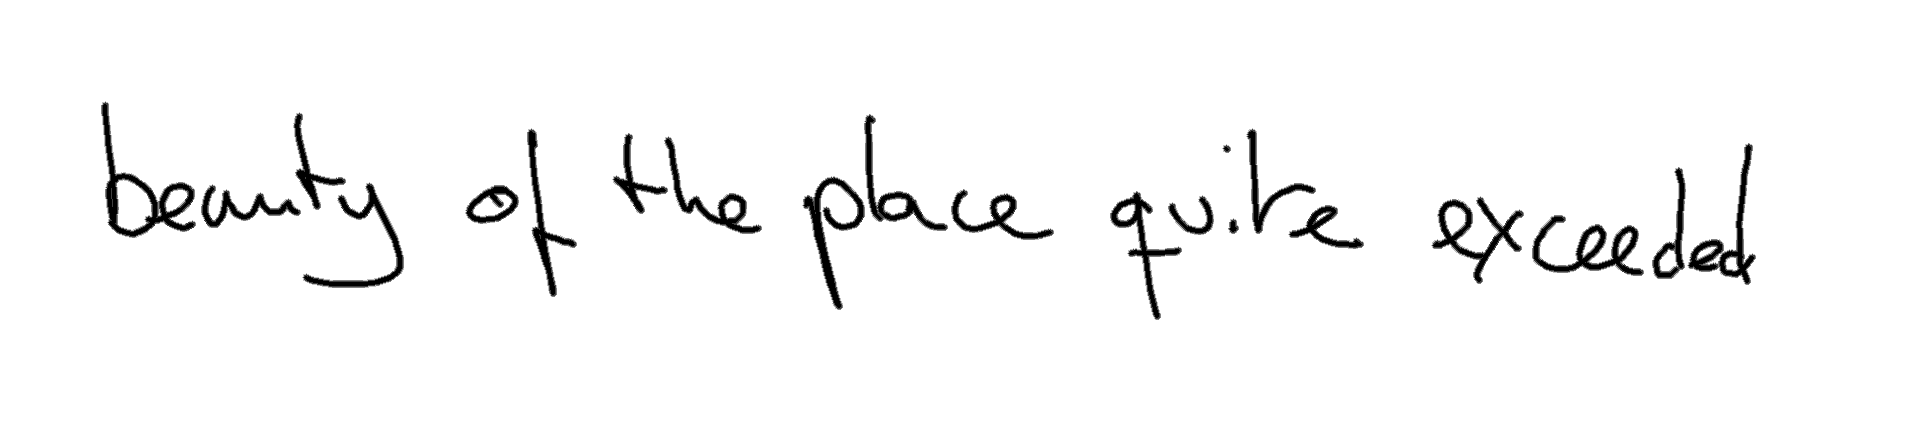 beauty of the place quite exceeded